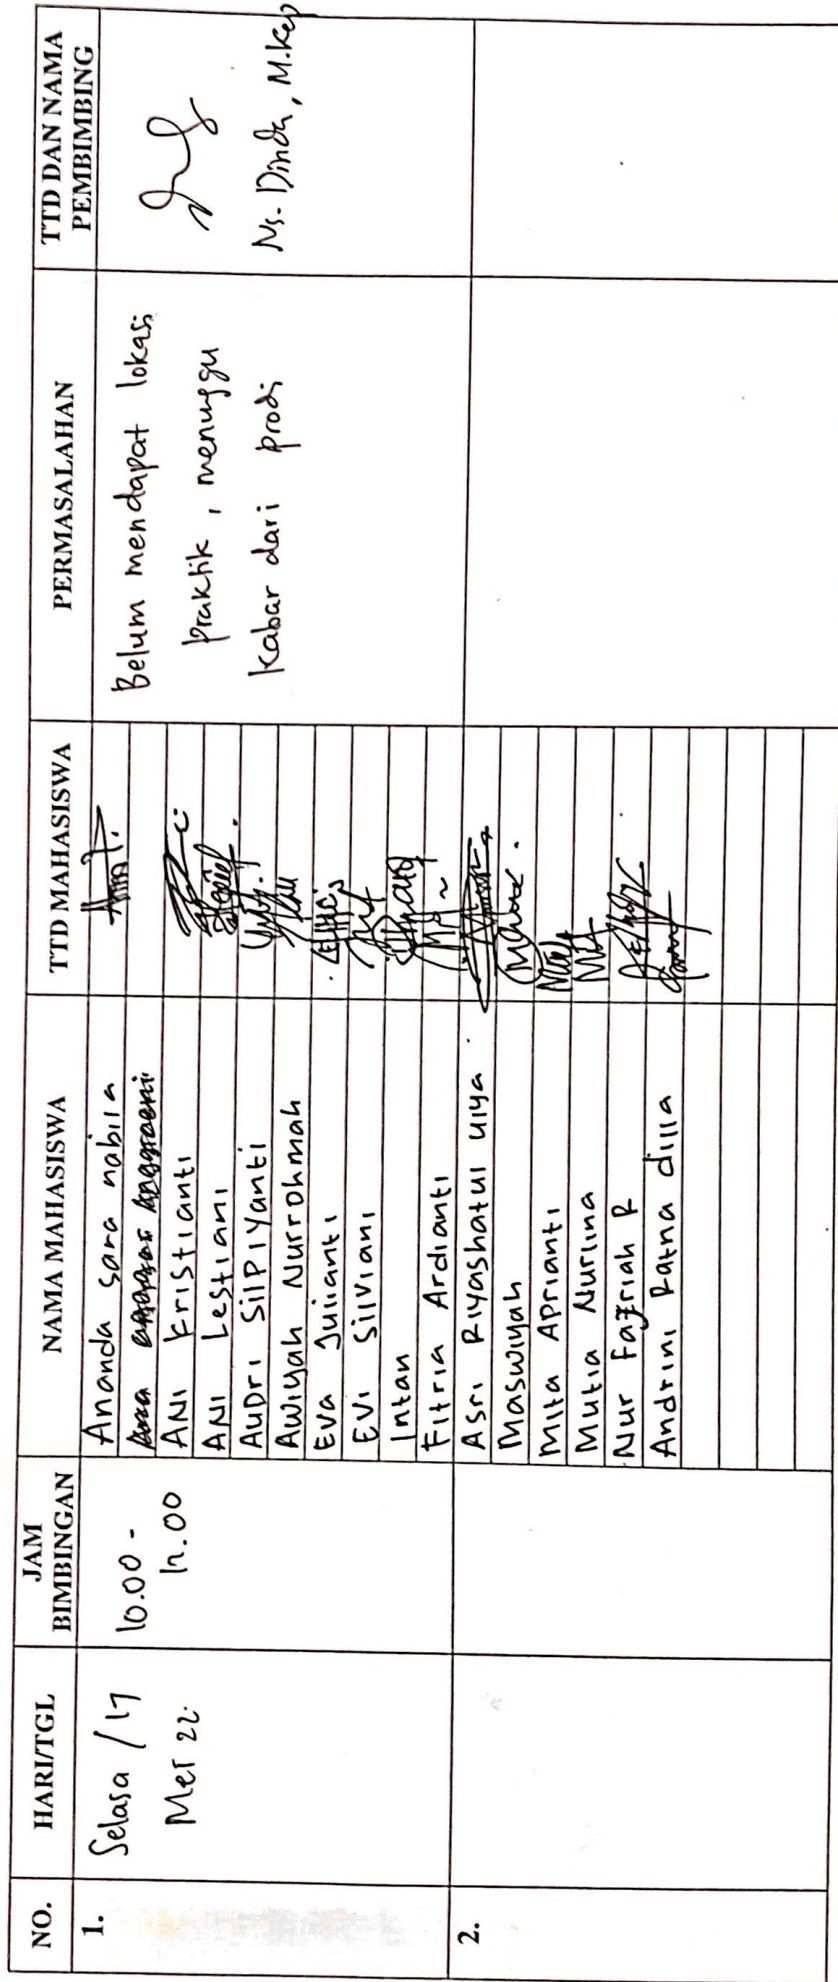 NO.
HARI/TGL
JAM
BIMBINGAN
NAMA MAHASISWA
TTD MAHASISWA
PERMASALAHAN
TTD DAN NAMA
PEMBIMBING
1.
Selasa / 17
Mei 22
10.00 -
Belum mendapat lokasi
praktik, menunggu
kabar dari prodi
Ns. Dinda, M.Kep
Ananda sara nabila
ANI Kristianti
ANI Lestiani
AUDRI SILPIYanti
Awiyah Nurrohmah
Eva Julianti
EVI Silviani
Intan
Fitria Ardianti
2.
Asri Riyashatul ulya
Maswiyah
Mita Aprianti
Mutia Nurlina
Nur Fajriah R
Andrini Ratna dilla